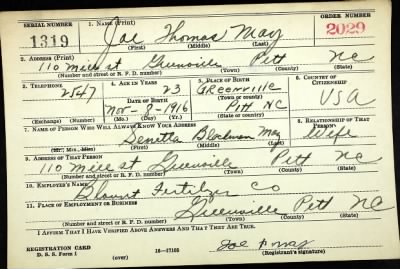 SERIAL NUMBER 1. NAME (Print) ORDER NUMBER
1319 Joe Thomas May 2029
(First) (Middle) (Last)
2. ADDRESS (Print)
110 Mill st Greenville Pitt NC
(Number and street or R. F. D. number) (Town) (County) (State)
3. TELEPHONE 4. AGE IN YEARS 5. PLACE OF BIRTH 6. COUNTRY OF CITIZENSHIP
2547 23 Greenville
DATE OF BIRTH (Town or county)
Nov-8-1916 Pitt NC USA
(Exchange) (Number) (Mo.) (Day) (Yr.) (State or country)
7. NAME OF PERSON WHO WILL ALWAYS KNOW YOUR ADDRESS 8. RELATIONSHIP OF THAT PERSON
Blackman May Wife
(Mr., Mrs., Miss) (First) (Middle) (Last)
9. ADDRESS OF THAT PERSON
110 Mill st Greenville Pitt NC
(Number and street or R. F. D. number) (Town) (County) (State)
10. EMPLOYER'S NAME
Blount Fertilizer Co
11. PLACE OF EMPLOYMENT OR BUSINESS
Greenville Pitt NC
(Number and street or R. F. D. number) (Town) (County) (State)
I AFFIRM THAT I HAVE VERIFIED ABOVE ANSWERS AND THAT THEY ARE TRUE.
REGISTRATION CARD Joe T May
D. S. S. Form 1 (over) 16-17105 (Registrant's signature)